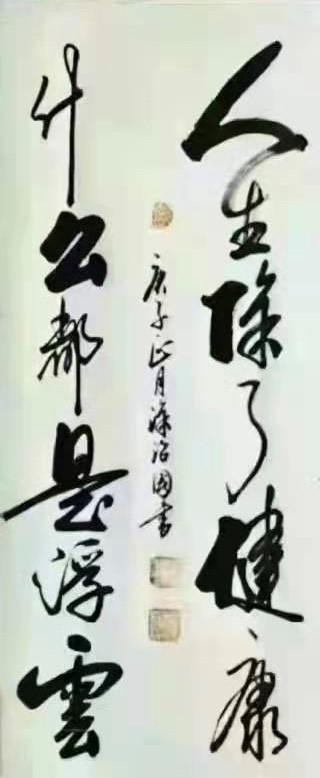 人生除了健康
什么都是浮雲
庚子正月滌治国書